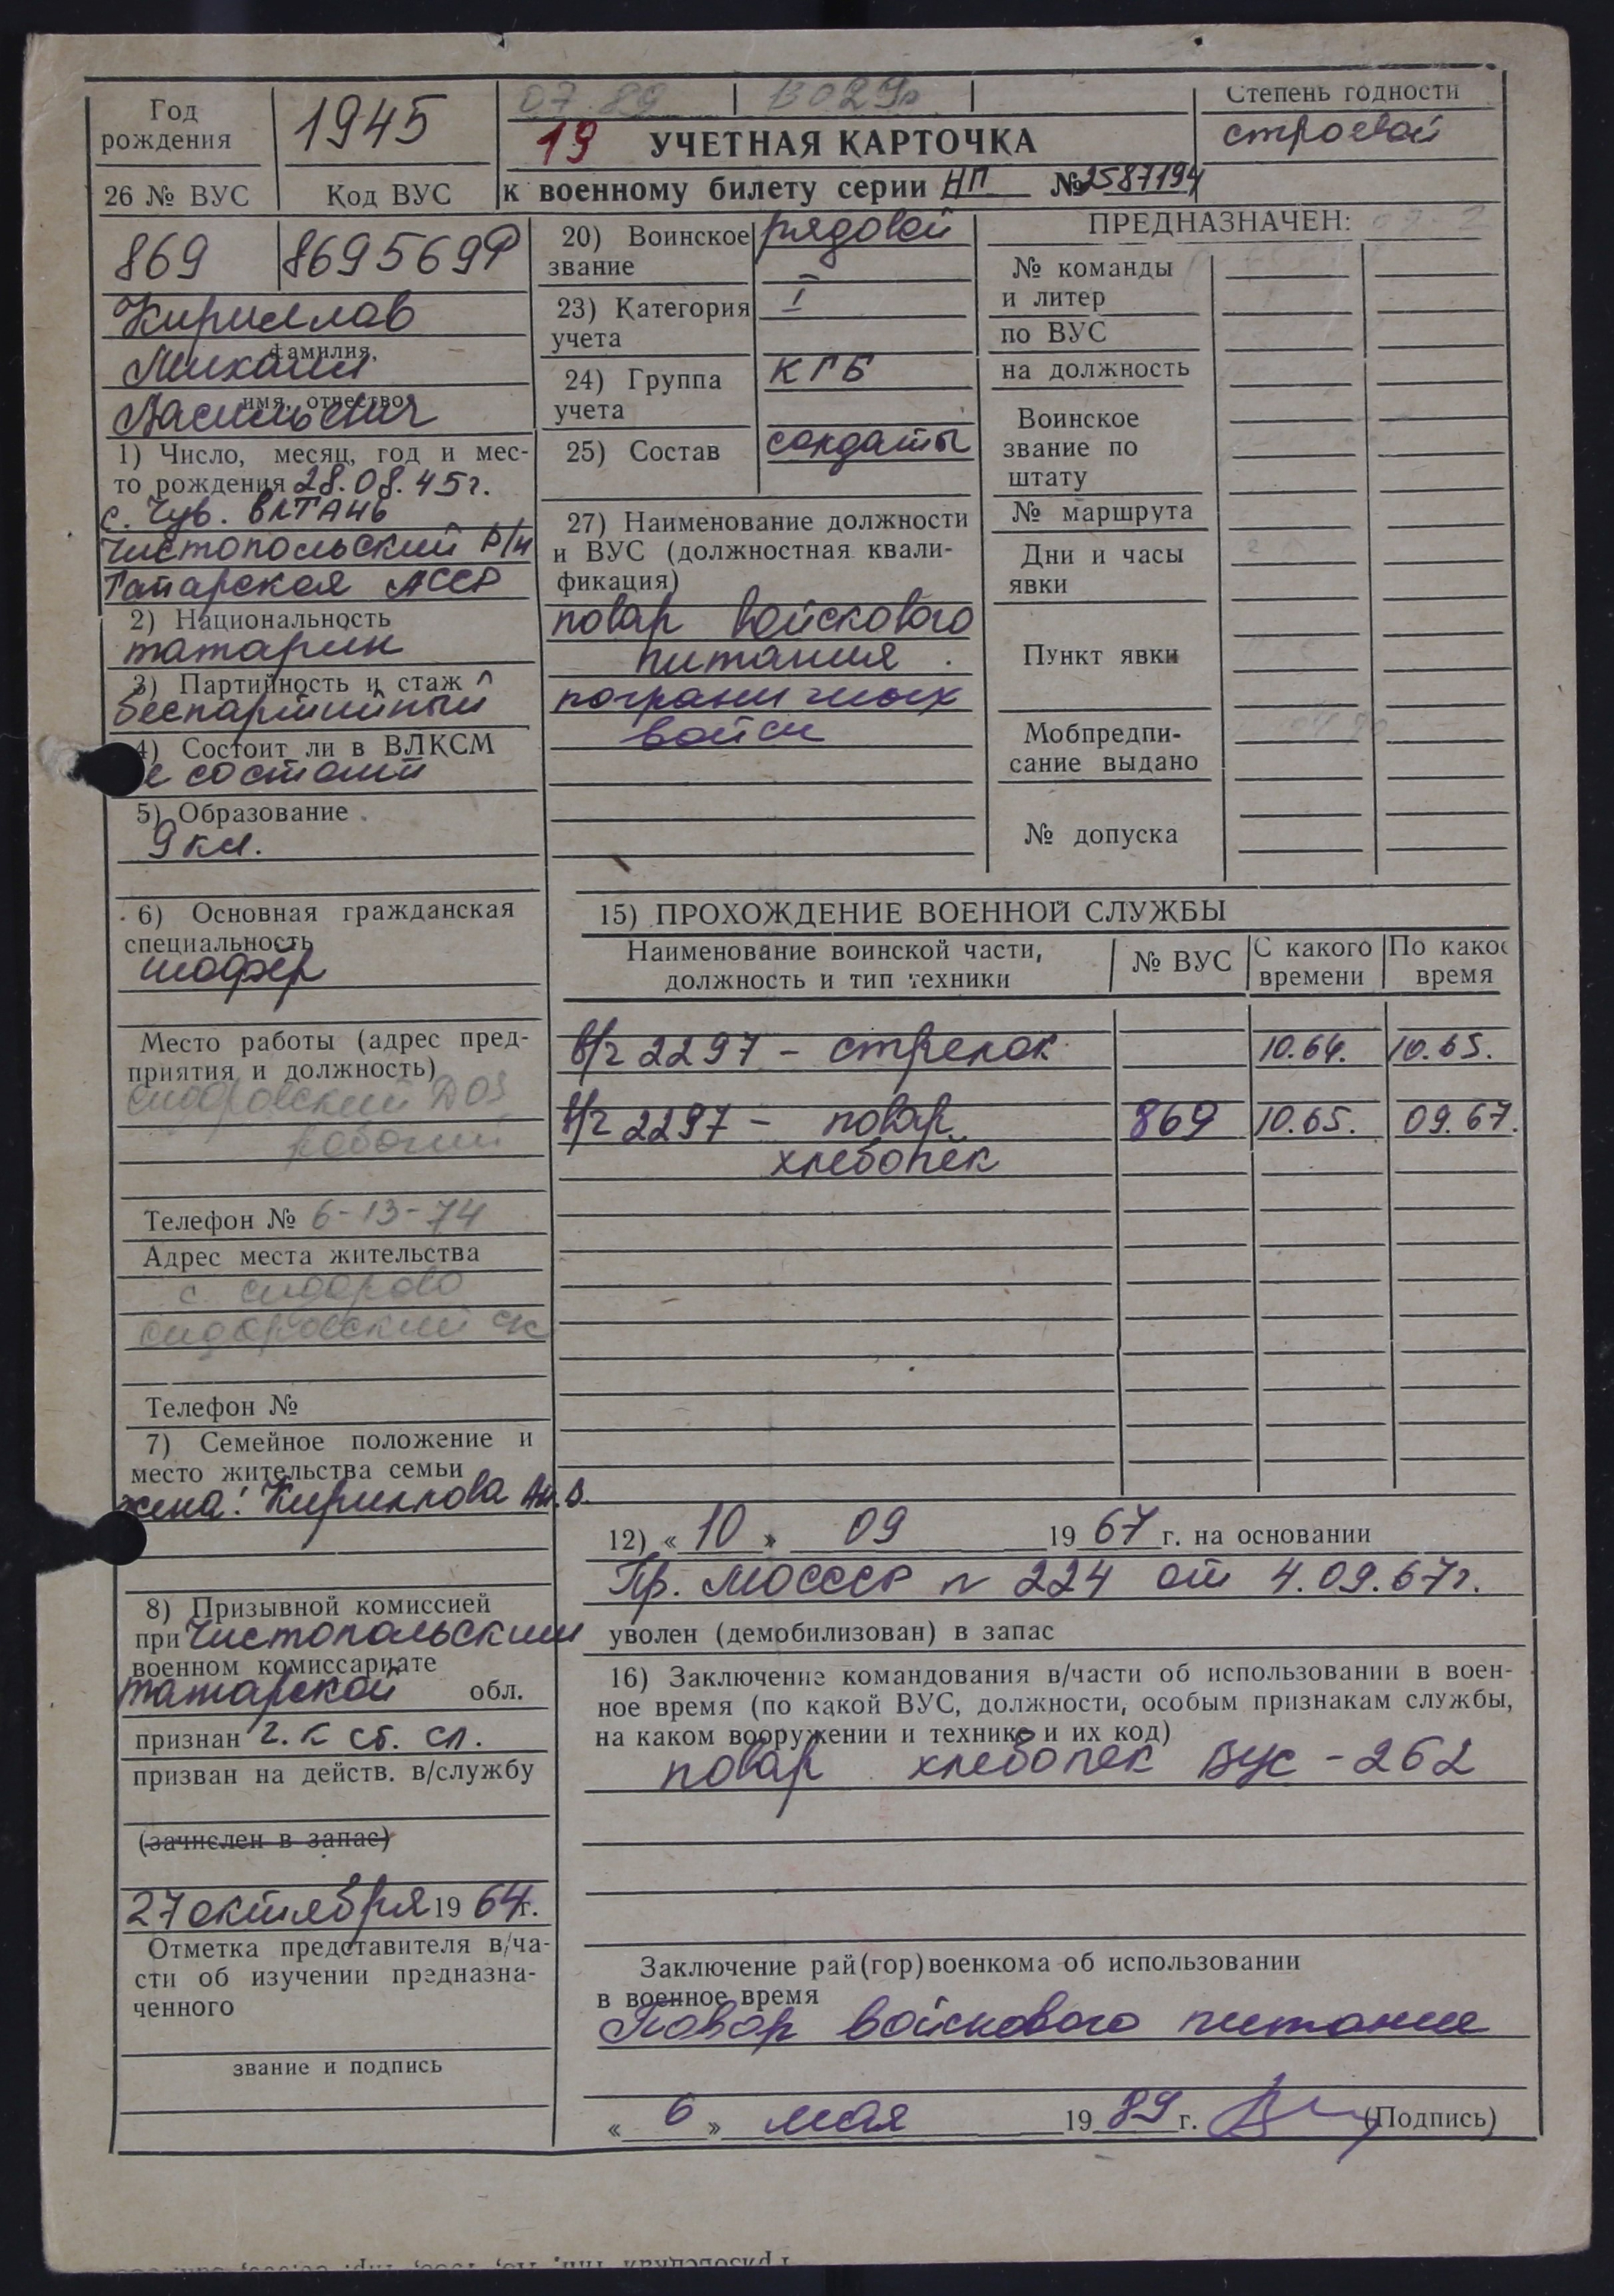 Год
рождения
1945
07.89
Степень годности
строевой
19 УЧЕТНАЯ КАРТОЧКА
к военному билету серии НП № 2587194
26 № ВУС Код ВУС
869 869569Р
Кириллов
фамилия,
Михаил
имя, отчество
Васильевич
1) Число, месяц, год и мес-
то рождения 28.08.45г.
с. Чув. ЕЛТАНЬ
Чистопольский р/н
Татарская АССР
2) Национальность
татарин
3) Партийность и стаж
беспартийный
4) Состоит ли в ВЛКСМ
не состоит
5) Образование
9 кл.
6) Основная гражданская
специальность
шофер
Место работы (адрес пред-
приятия и должность)
Сидоровский ДОЗ
рабочий
Телефон № 6-13-74
Адрес места жительства
с. Сидорово
Сидоровский с/с
Телефон №
7) Семейное положение и
место жительства семьи
жена: Кириллова
8) Призывной комиссией
при Чистопольским
военном комиссариате
татарской обл.
признан г. к ст. сл.
призван на действ. в/службу
(зачислен в запас)
27 октября 1964г.
Отметка представителя в/ча-
сти об изучении предназна-
ченного
звание и подпись
20) Воинское
звание
рядовой
23) Категория
учета
I
24) Группа
учета
КГБ
25) Состав
солдаты
27) Наименование должности
и ВУС (должностная квали-
фикация)
повар войскового
питания
пограничных
войск
ПРЕДНАЗНАЧЕН:
№ команды
и литер
по ВУС
на должность
Воинское
звание по
штату
№ маршрута
Дни и часы
явки
Пункт явки
Мобпредпи-
сание выдано
№ допуска
15) ПРОХОЖДЕНИЕ ВОЕННОЙ СЛУЖБЫ
Наименование воинской части,
должность и тип техники
№ ВУС
С какого
времени
По какое
время
в/ч 2297 - стрелок 10.64. 10.65.
в/ч 2297 - повар 869 10.65. 09.67.
хлебопек
12) « 10 » 09 1967 г. на основании
Пр. МОСССР № 224 от 4.09.67г.
уволен (демобилизован) в запас
16) Заключение командования в/части об использовании в воен-
ное время (по какой ВУС, должности, особым признакам службы,
на каком вооружении и технике и их код)
повар хлебопек ВУС - 262
Заключение рай(гор)военкома об использовании
в военное время
Повар войскового питания
« 6 » мая 1989 г. (Подпись)